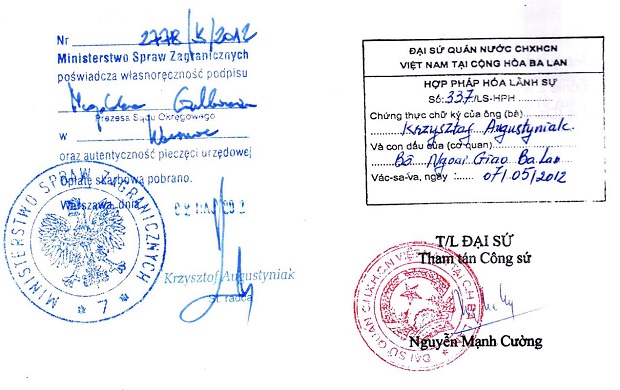 Nr 2778/K/2012
Ministerstwo Spraw Zagranicznych
poświadcza własnoręczność podpisu
Prezesa Sądu Okręgowego
w
oraz autentyczność pieczęci urzędowej
Opłatę skarbową pobrano.
Warszawa, dnia
MINISTERSTWO SPRAW ZAGRANICZNYCH
* 7 *
Krzysztof Augustyniak
ĐẠI SỨ QUÁN NƯỚC CHXHCN
VIỆT NAM TẠI CỘNG HÒA BA LAN
HỢP PHÁP HÓA LÃNH SỰ
Số: 337/LS-HPH
Chứng thực chữ ký của ông (bà)
Krzysztof Augustyniak
Và con dấu của (cơ quan)
Bộ Ngoại Giao Ba Lan
Vác-sa-va, ngày : 07/05/2012
T/L ĐẠI SỨ
Tham tán Công sứ
Nguyễn Mạnh Cường